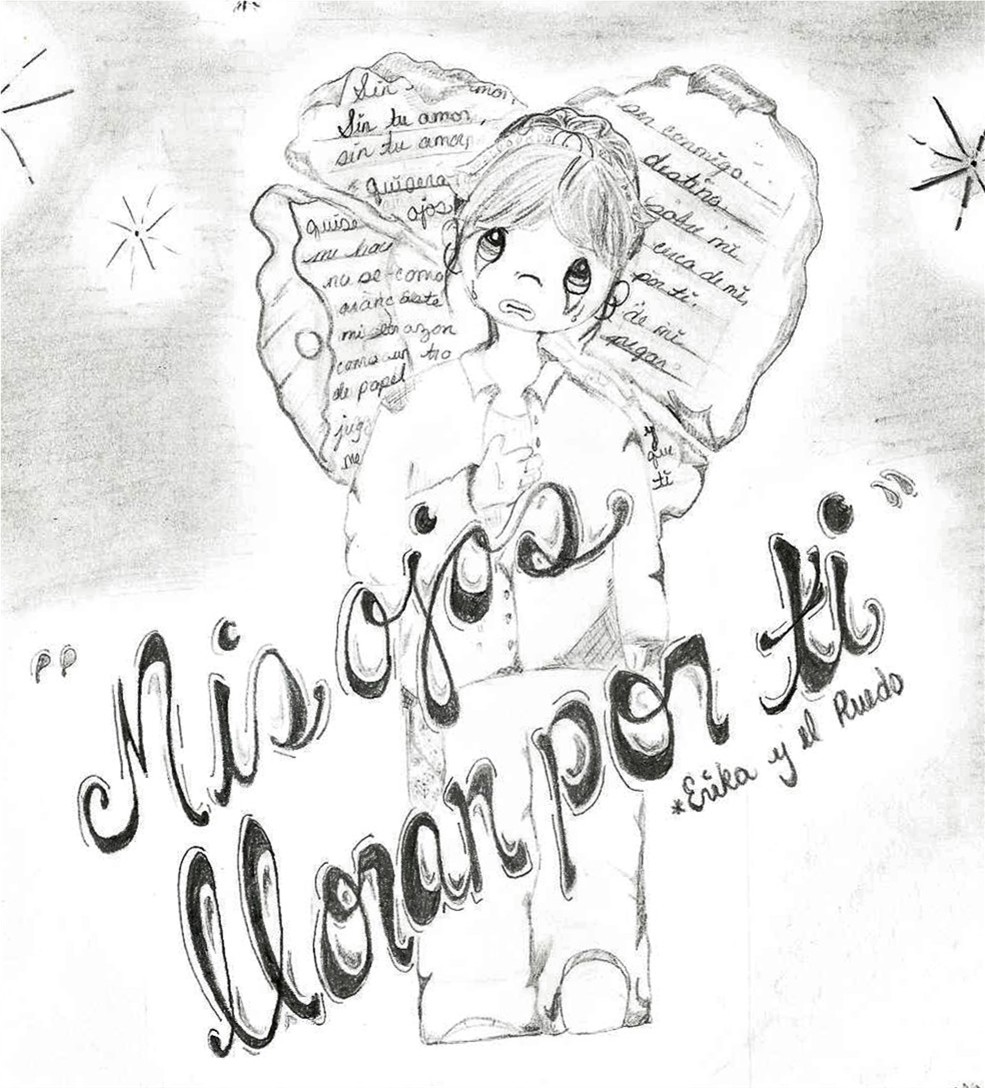 Sin
Sin tu amor,
sin tu amor,
quisera
ojos
quise
me hac
no se como
aranc aste
mi corazon
como un tro
de papel
jug
me
ser conmigo.
destino.
sobre mi
cuca de mi,
por ti.
de mi
pegar.
y
que
ti
"Mis ojos
lloran por ti"
*Erika y el Ruedo